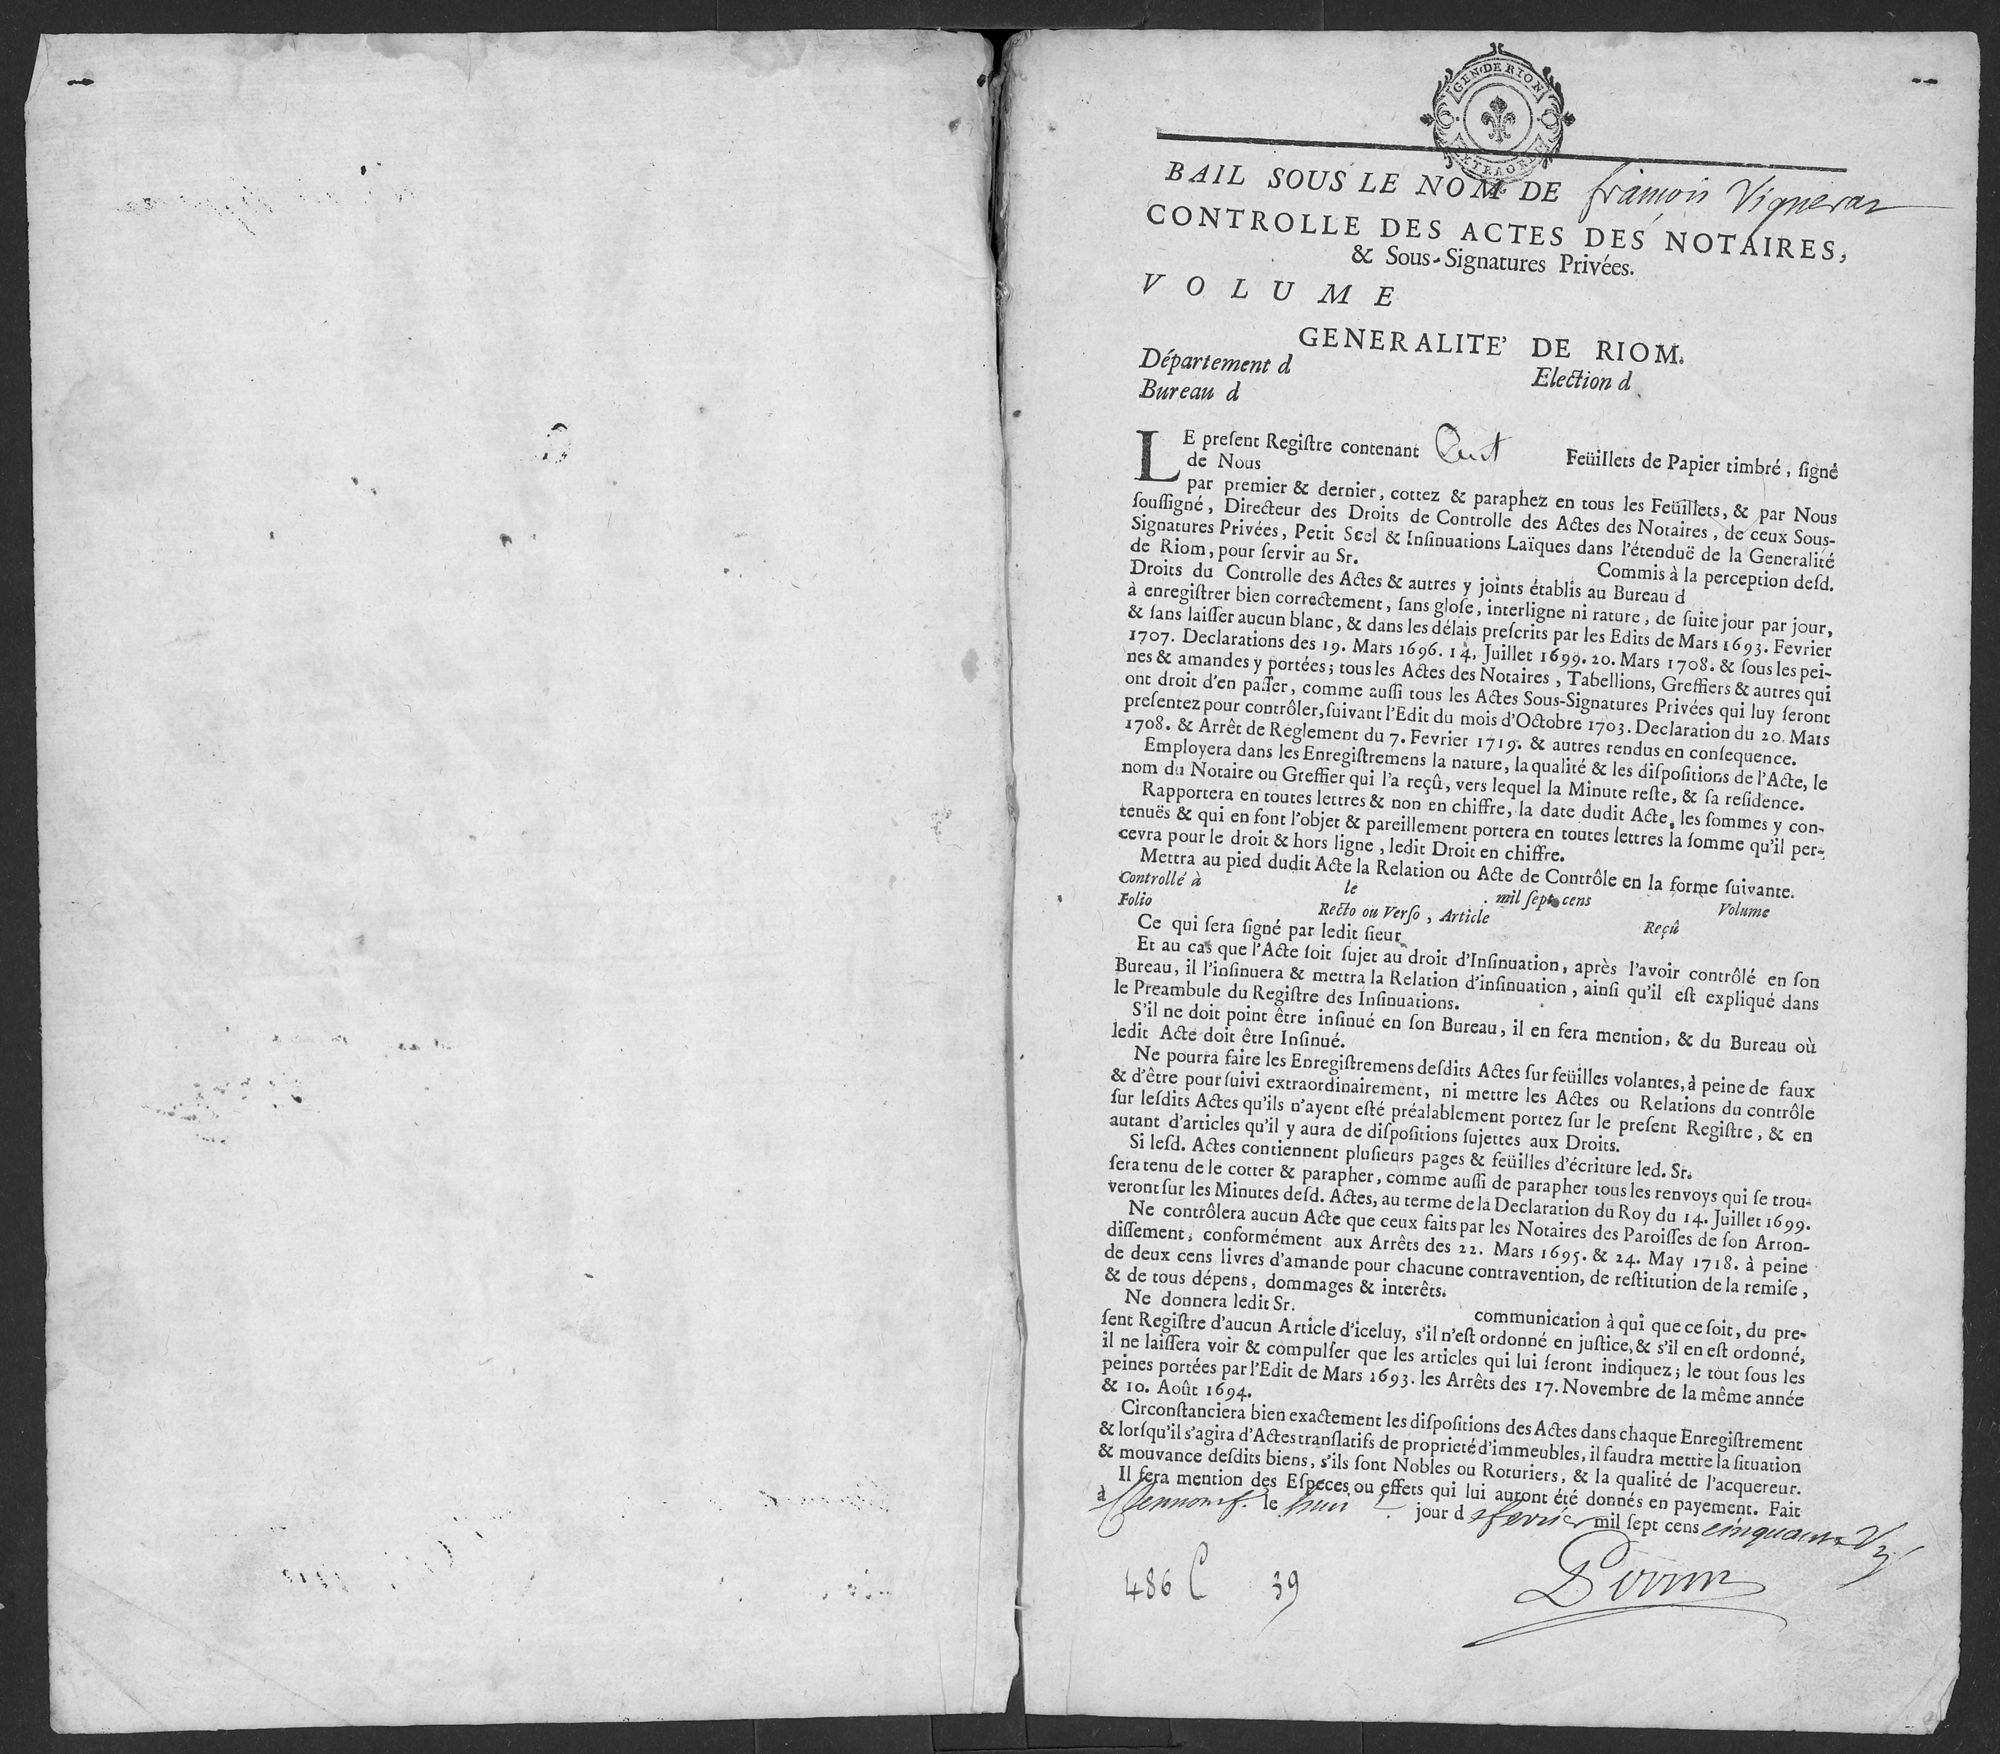 GEN. DE RION
EXTRAORD
BAIL SOUS LE NOM DE françois Vigneras
CONTROLLE DES ACTES DES NOTAIRES,
& Sous-Signatures Privées.
VOLUME
GENERALITE' DE RIOM.
Département d Election d
Bureau d
LE preſent Regiſtre contenant Cent Feüillets de Papier timbré, ſigné
de Nous
par premier & dernier, cottez & paraphez en tous les Feüillets, & par Nous
ſouſſigné, Directeur des Droits de Controlle des Actes des Notaires, de ceux Sous-
Signatures Privées, Petit Scel & Inſinuations Laïques dans l'étenduë de la Generalité
de Riom, pour ſervir au Sr. Commis à la perception deſd.
Droits du Controlle des Actes & autres y joints établis au Bureau d
à enregiſtrer bien correctement, ſans gloſe, interligne ni rature, de ſuite jour par jour,
& ſans laiſſer aucun blanc, & dans les délais preſcrits par les Edits de Mars 1693. Fevrier
1707. Declarations des 19. Mars 1696. 14. Juillet 1699. 20. Mars 1708. & ſous les pei-
nes & amandes y portées; tous les Actes des Notaires, Tabellions, Greffiers & autres qui
ont droit d'en paſſer, comme auſſi tous les Actes Sous-Signatures Privées qui luy ſeront
preſentez pour contrôler, ſuivant l'Edit du mois d'Octobre 1703. Declaration du 20. Mars
1708. & Arrêt de Reglement du 7. Fevrier 1719. & autres rendus en conſequence.
Employera dans les Enregiſtremens la nature, la qualité & les diſpoſitions de l'Acte, le
nom du Notaire ou Greffier qui l'a reçû, vers lequel la Minute reſte, & ſa reſidence.
Rapportera en toutes lettres & non en chiffre, la date dudit Acte, les ſommes y con-
tenuës & qui en font l'objet & pareillement portera en toutes lettres la ſomme qu'il per-
cevra pour le droit & hors ligne, ledit Droit en chiffre.
Mettra au pied dudit Acte la Relation ou Acte de Contrôle en la forme ſuivante.
Controllé à le mil ſept cens Volume
Folio Recto ou Verſo, Article Reçû
Ce qui ſera ſigné par ledit ſieur
Et au cas que l'Acte ſoit ſujet au droit d'Inſinuation, après l'avoir contrôlé en ſon
Bureau, il l'inſinuera & mettra la Relation d'inſinuation, ainſi qu'il eſt expliqué dans
le Preambule du Regiſtre des Inſinuations.
S'il ne doit point être inſinué en ſon Bureau, il en fera mention, & du Bureau où
ledit Acte doit être Inſinué.
Ne pourra faire les Enregiſtremens deſdits Actes ſur feüilles volantes, à peine de faux
& d'être pourſuivi extraordinairement, ni mettre les Actes ou Relations du contrôle
ſur leſdits Actes qu'ils n'ayent eſté préalablement portez ſur le preſent Regiſtre, & en
autant d'articles qu'il y aura de diſpoſitions ſujettes aux Droits.
Si leſd. Actes contiennent pluſieurs pages & feüilles d'écriture led. Sr.
ſera tenu de le cotter & parapher, comme auſſi de parapher tous les renvoys qui ſe trou-
veront ſur les Minutes deſd. Actes, au terme de la Declaration du Roy du 14. Juillet 1699.
Ne contrôlera aucun Acte que ceux faits par les Notaires des Paroiſſes de ſon Arron-
diſſement, conformément aux Arrêts des 22. Mars 1695. & 24. May 1718. à peine
de deux cens livres d'amande pour chacune contravention, de reſtitution de la remiſe,
& de tous dépens, dommages & interêts.
Ne donnera ledit Sr. communication à qui que ce ſoit, du pre-
ſent Regiſtre d'aucun Article d'iceluy, s'il n'eſt ordonné en juſtice, & s'il en eſt ordonné,
il ne laiſſera voir & compulſer que les articles qui lui ſeront indiquez; le tout ſous les
peines portées par l'Edit de Mars 1693. les Arrêts des 17. Novembre de la même année
& 10. Août 1694.
Circonſtanciera bien exactement les diſpoſitions des Actes dans chaque Enregiſtrement
& lorſqu'il s'agira d'Actes tranſlatifs de proprieté d'immeubles, il faudra mettre la ſituation
& mouvance deſdits biens, s'ils ſont Nobles ou Roturiers, & la qualité de l'acquereur.
Il ſera mention des Eſpeces ou effets qui lui auront été donnés en payement. Fait
à Clermont f. le huit jour d fevrier mil ſept cens cinquante
486 C 39